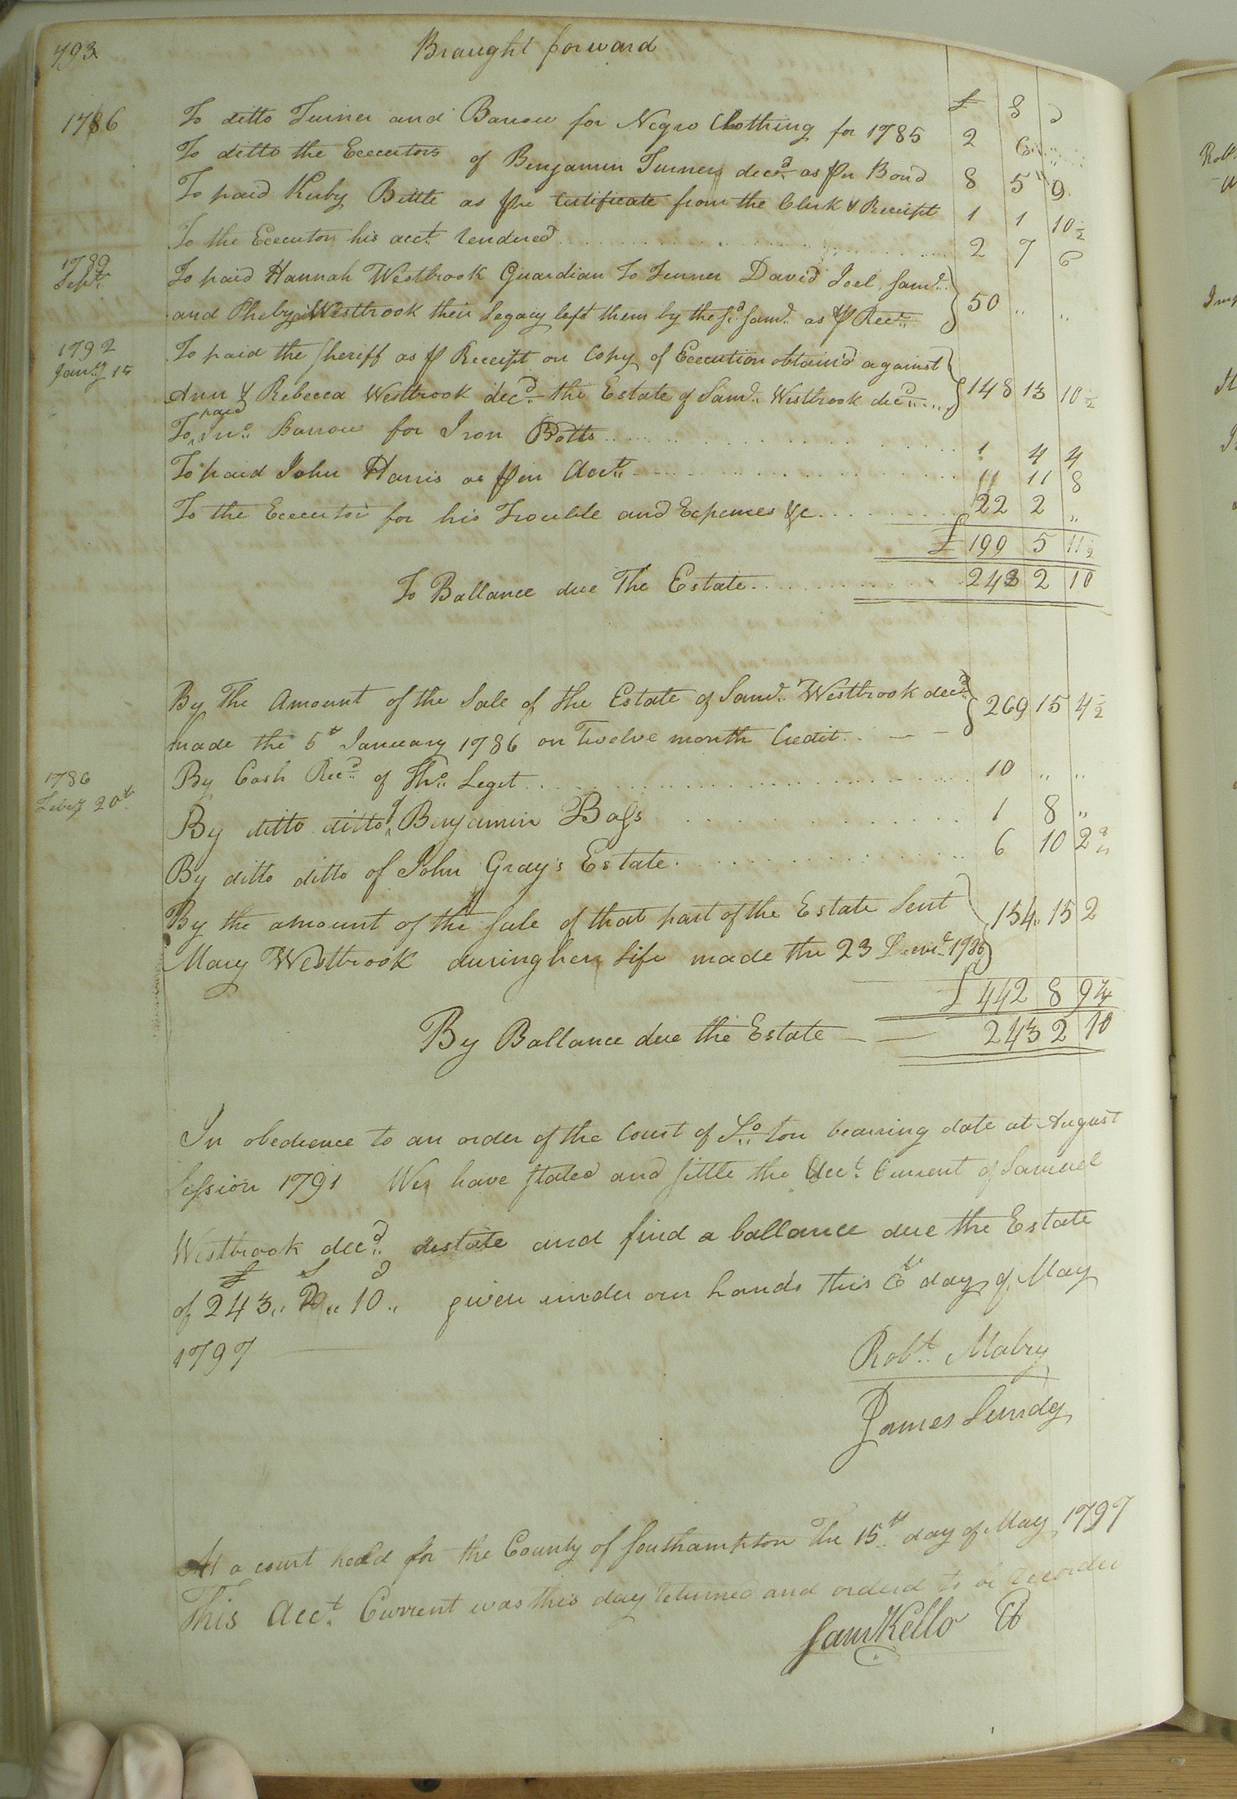 493 Braught forward
£ S D
1786 To ditto Turner and Barrow for Negro Clothing for 1785 2 6 „
To ditto the Executors of Benjamin Turner decd. as pr Bond 8 5 9
To paid Kirby Bittle as pr Certificate from the Clerk & Receipt 1 1 10½
To the Executors his acct. rendered 2 7 6
1789 Sepr. To paid Hannah Westbrook Guardian To Turner David Joel, Saml.
and Pheby Westbrook their Legacy left them by the sd. Saml. as pr Rect. 50 „ „
1792 Jany 15 To paid the Sheriff as pr Receipt on Copy of Execution obtaind against
Ann & Rebecca Westbrook decd. the Estate of Saml. Westbrook decd. 148 13 10½
To paid Jno. Barrow for Iron Potts 1 4 4
To paid John Harris as per Acct. 11 11 8
To the Executor for his Trouble and Expences &c. 22 2 „
£ 199 5 11½
To Ballance due The Estate 243 2 10
By The Amount of the Sale of the Estate of Saml. Westbrook decd.
made the 5th January 1786 on Twelve month Credit 269 15 4½
1786 Feby 20th By Cash Recd. of Thos. Leget 10 „ „
By ditto ditto of Benjamin Bass 1 8 „
By ditto ditto of John Gray's Estate 6 10 2
By the amount of the Sale of that part of the Estate Lent 154 15 2
Mary Westbrook during her Life made the 23
£ 442 8 9¼
By Ballance due the Estate 243 2 10
In obedience to an order of the Court of So.ton bearing date at August
Session 1791 We have stated and sittle the Acct. Current of Samuel
Westbrook decd. estate and find a ballance due the Estate
£ S d
of 243 „ 2 „ 10 „ given under our hands this 6th day of May
1797
Robt. Mabry
James Lundy
At a court heald for the County of Southampton The 15th day of May 1797
This Acct. Current was this day returned and orderd to be recorder
Saml Kello